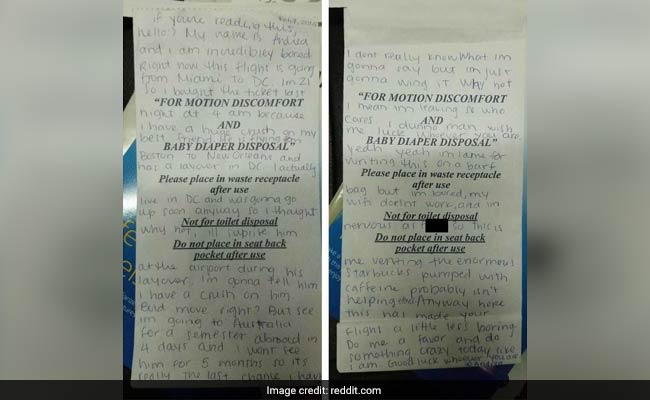 Feb 8, 2015
if you're reading this,
hello! My name is Andrea
and I am incredibley bored
Right now this flight is going
from Miami to DC. Im 21
so I bought the ticket last
"FOR MOTION DISCOMFORT
night at 4 am because
AND
I have a huge crush on my
BABY DIAPER DISPOSAL"
best friend. He is flying from
Boston to New Orleans and
has a layover in DC. I actually
Please place in waste receptacle
after use
live in DC and was gonna go
up soon anyway so I thought
Not for toilet disposal
why not, ill suprise him
Do not place in seat back
pocket after use
at the airport during his
layover. im gonna tell him
I have a crush on him.
Bold move right? But see
im going to Australia
for a semester abroad in
4 days and I wont see
him for 5 months so its
really the last chance I have
I dont really know what im
gonna say but im just
gonna wing it. Why not
"FOR MOTION DISCOMFORT
I mean im leaving so who
AND
cares. I dunno man wish
me luck whoever you are
BABY DIAPER DISPOSAL"
yeah yeah im lame for
writing this on a barf
Please place in waste receptacle
after use
bag but im bored, my
wifi doesnt work, and im
Not for toilet disposal
nervous as so this is
Do not place in seat back
pocket after use
me venting the enormous
Starbucks pumped with
caffeine probably isn't
helping too. Anyway hope
this has made your
flight a little less boring
Do me a favor and do
something crazy today like
I am. Good luck whoever you are
Andrea
Image credit: reddit.com